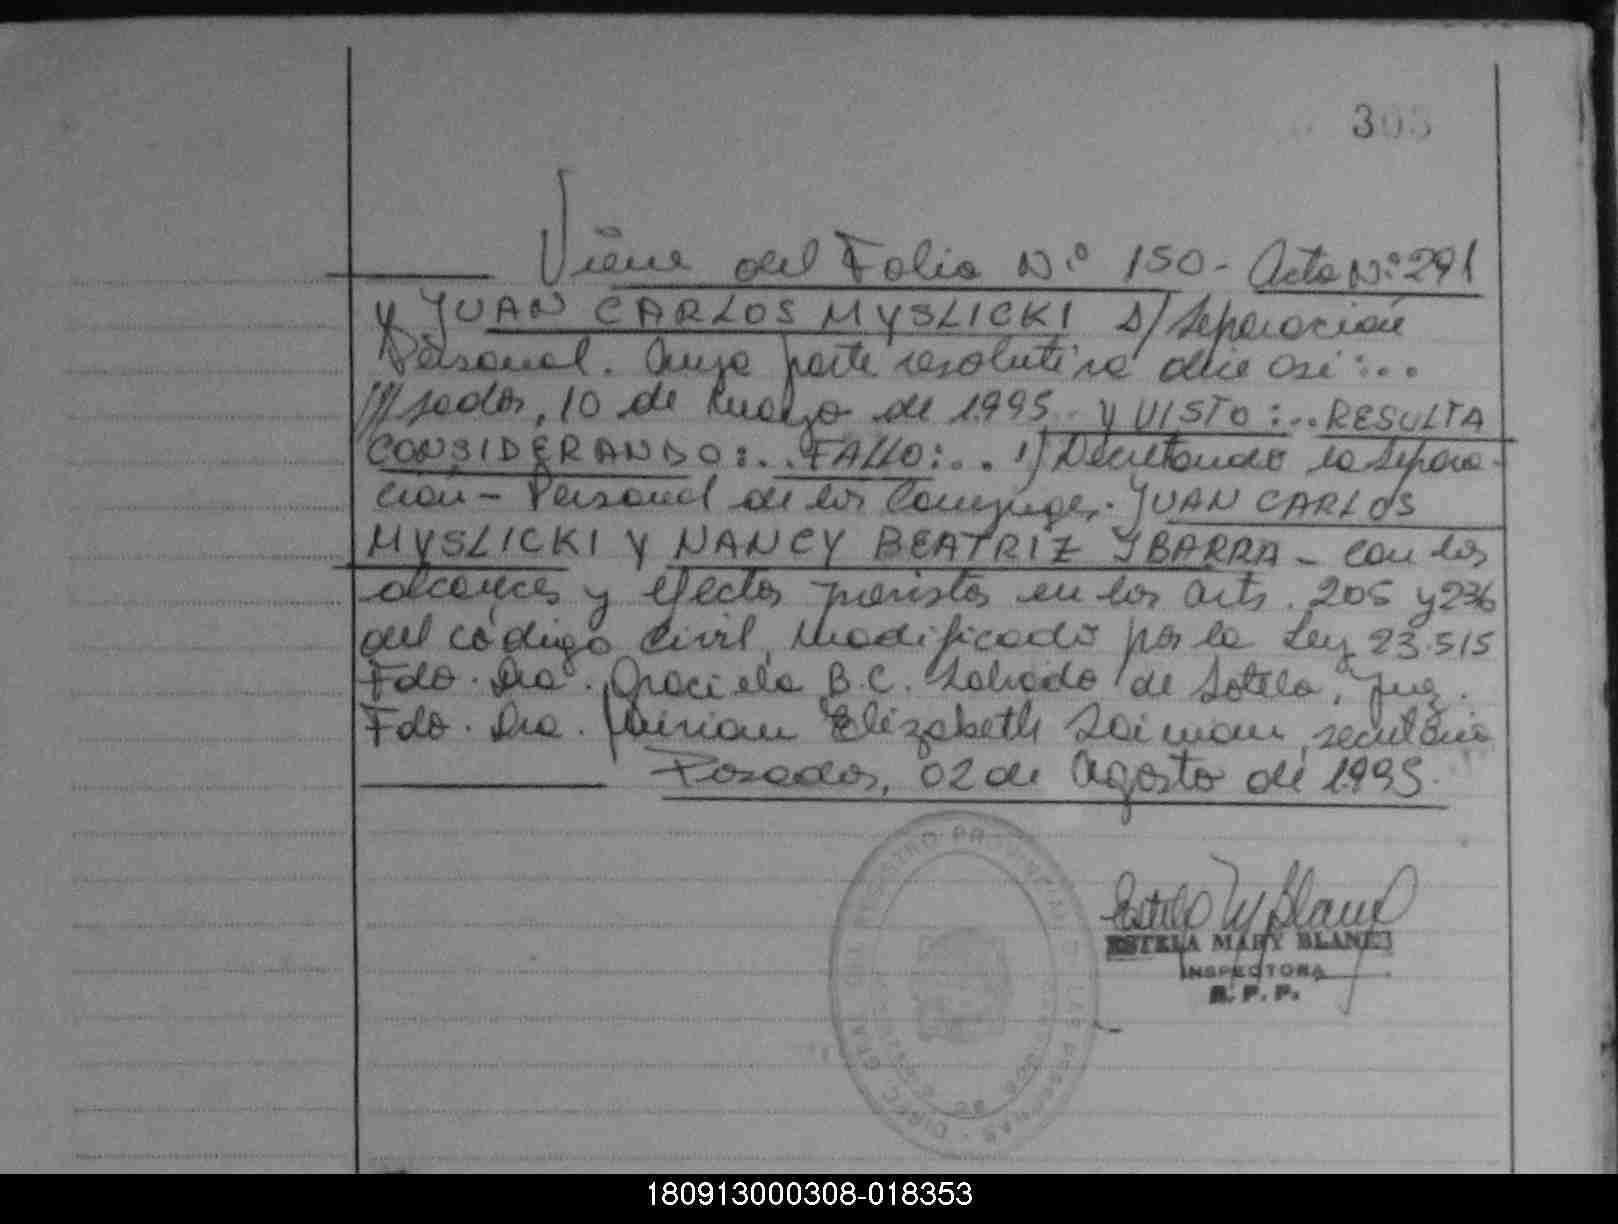 303
Viene del Folio N.º 150 - Acta Nº 291
y JUAN CARLOS MYSLICKI S/ Separación
Personal. Cuya parte resolutiva dice así:...
///sadas, 10 de Marzo de 1995. Y VISTO:... RESULTA
CONSIDERANDO:... FALLO:... 1) Decretando la Separa-
ción - Personal de los Conyuges. JUAN CARLOS
MYSLICKI Y NANCY BEATRIZ YBARRA - con los
alcances y efectos previstos en los arts. 205 y 236
del código Civil, modificado por la Ley 23.515
Fdo. Dra. Graciela B.C. Salvado de Sotelo, Juez.
Fdo. Dra. Miriam Elizabeth, secretaria
Posadas, 02 de Agosto de 1995.
ESTELA MARY BLANE
INSPECTORA
R. P. P.
REGISTRO PROVINCIAL DE LAS PERSONAS
180913000308-018353